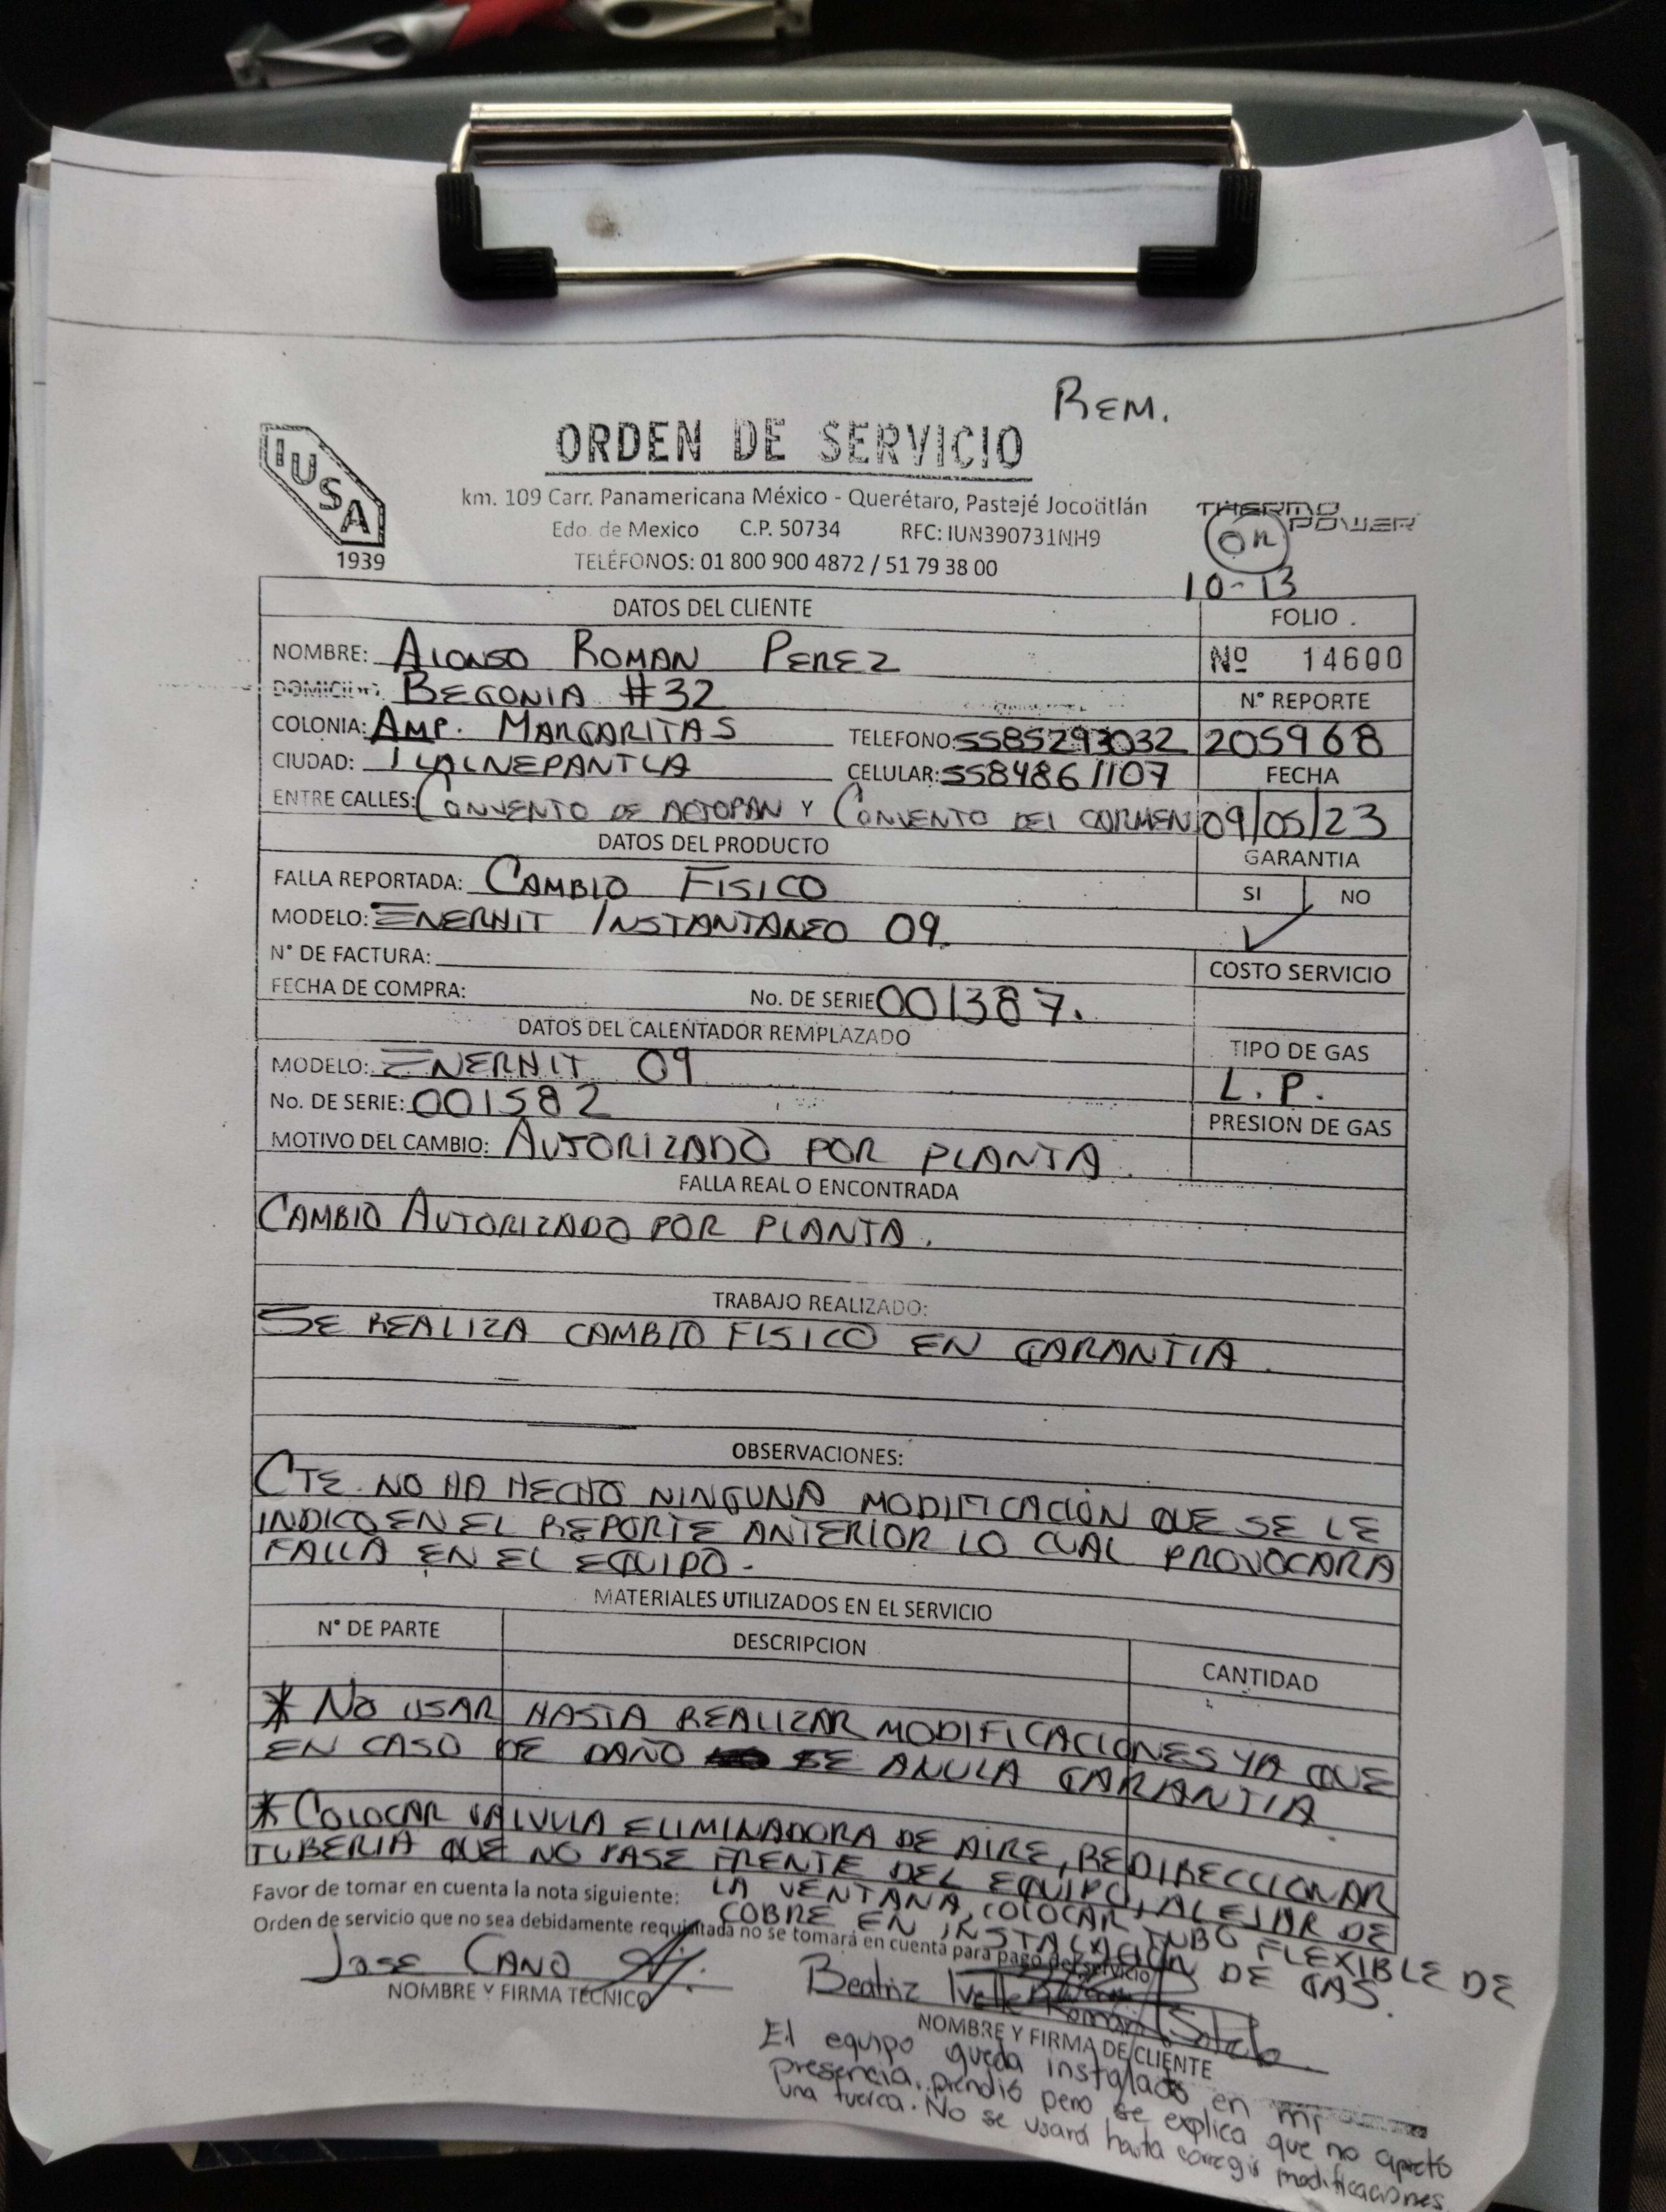 REM.
IUSA
1939
ORDEN DE SERVICIO
km. 109 Carr. Panamericana México - Querétaro, Pastejé Jocotitlán
Edo. de Mexico C.P. 50734 RFC: IUN390731NH9
TELÉFONOS: 01 800 900 4872 / 51 79 38 00
THERMO
POWER
On
10-13
DATOS DEL CLIENTE
FOLIO
NOMBRE: ALONSO ROMAN PEREZ
Nº 14600
DOMICILIO BEGONIA #32
N° REPORTE
COLONIA: AMP. MARGARITAS TELEFONO: 5585293032
205968
CIUDAD: TLALNEPANTLA CELULAR: 5584861107
FECHA
ENTRE CALLES: CONVENTO DE ACTOPAN Y CONVENTO DEL CARMEN
09/05/23
DATOS DEL PRODUCTO
GARANTIA
FALLA REPORTADA: CAMBIO FISICO
SI NO
MODELO: ENERHIT INSTANTANEO 09.
✓
N° DE FACTURA:
COSTO SERVICIO
FECHA DE COMPRA: No. DE SERIE 001387.
DATOS DEL CALENTADOR REMPLAZADO
TIPO DE GAS
MODELO: ENERHIT 09
L.P.
No. DE SERIE: 001582
PRESION DE GAS
MOTIVO DEL CAMBIO: AUTORIZADO POR PLANTA.
FALLA REAL O ENCONTRADA
CAMBIO AUTORIZADO POR PLANTA.
TRABAJO REALIZADO:
SE REALIZA CAMBIO FISICO EN GARANTIA.
OBSERVACIONES:
CTE. NO HA HECHO NINGUNA MODIFICACIÓN QUE SE LE
INDICO EN EL REPORTE ANTERIOR LO CUAL PROVOCARA
FALLA EN EL EQUIPO.
MATERIALES UTILIZADOS EN EL SERVICIO
N° DE PARTE DESCRIPCION CANTIDAD
* NO USAR HASTA REALIZAR MODIFICACIONES YA QUE
EN CASO DE DAÑO SE ANULA GARANTIA
* COLOCAR VALVULA ELIMINADORA DE AIRE, REDIRECCIONAR
TUBERIA QUE NO PASE FRENTE DEL EQUIPO, ALEJAR DE
LA VENTANA, COLOCAR TUBO FLEXIBLE DE
COBRE EN INSTALACIÓN DE GAS.
Favor de tomar en cuenta la nota siguiente:
Orden de servicio que no sea debidamente requisitada no se tomará en cuenta para pago del servicio
JOSE CANO
NOMBRE Y FIRMA TÉCNICO
Beatriz Ivette Román Sotelo
NOMBRE Y FIRMA DE CLIENTE
El equipo queda instalado en mi
presencia. prendió pero se explica que no apretó
una tuerca. No se usará hasta corregir modificaciones